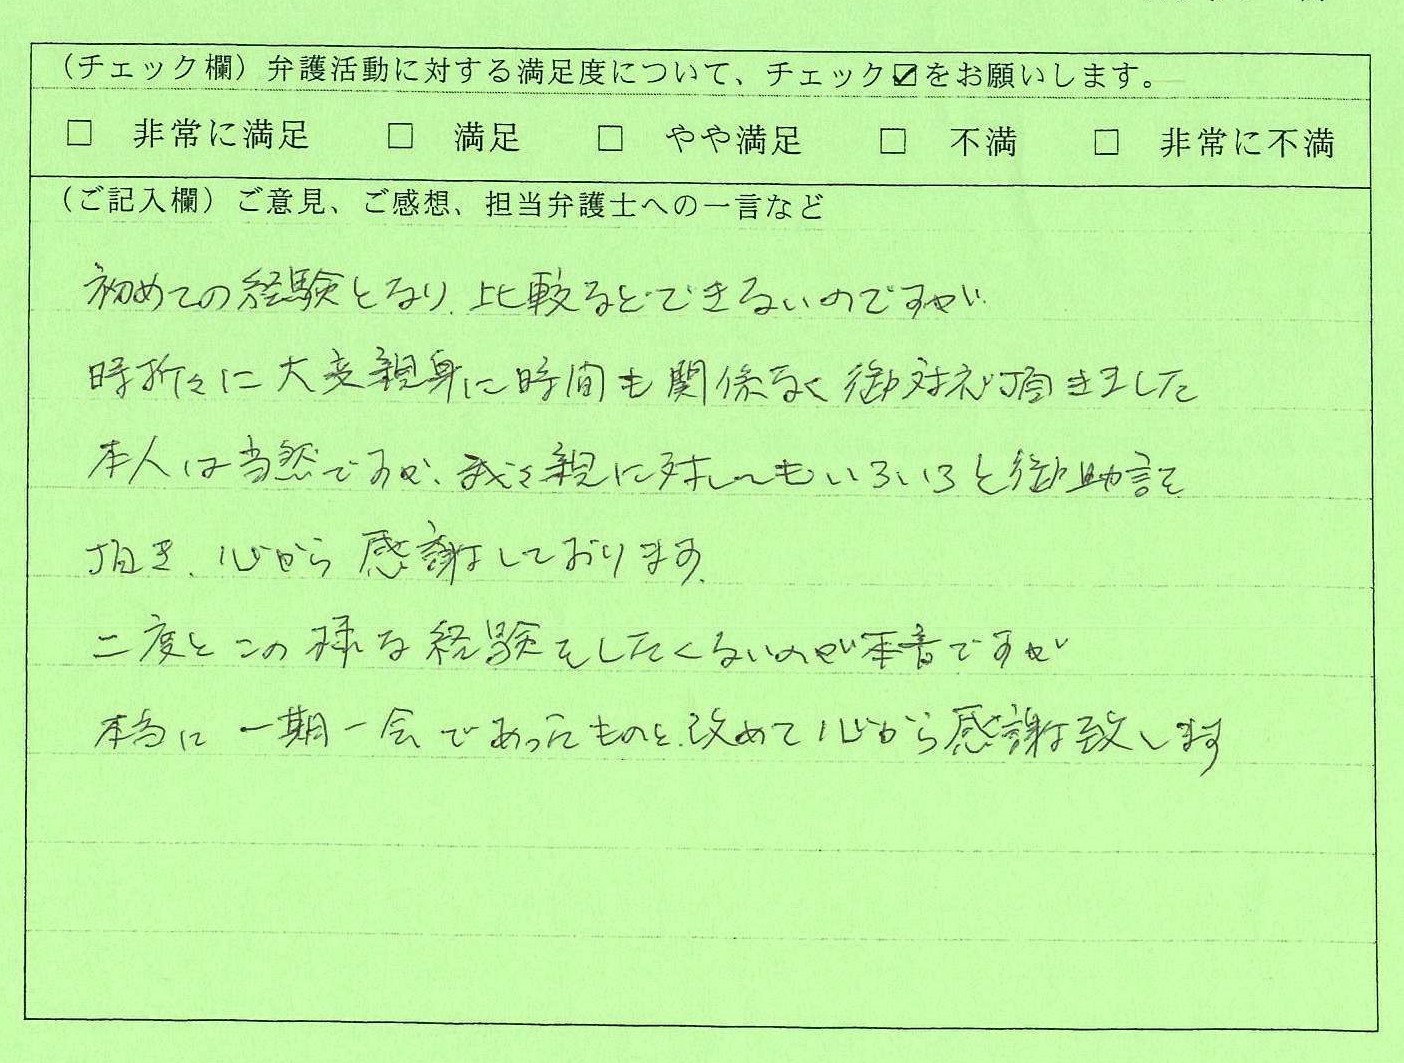 （チェック欄）弁護活動に対する満足度について、チェック☑をお願いします。
□ 非常に満足 □ 満足 □ やや満足 □ 不満 □ 非常に不満
（ご記入欄）ご意見、ご感想、担当弁護士への一言など
初めての経験となり、比較などできないのですが
時折々に大変親身に時間も関係なく御対応頂きました
本人は当然ですが、我々親に対してもいろいろと御助言を
頂き、心から感謝しております。
二度とこの様な経験をしたくないのが本音ですが
本当に一期一会であったものと、改めて心から感謝致します